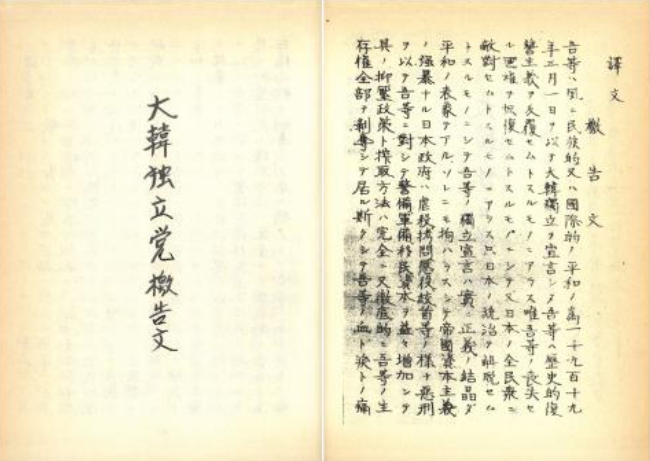 大韓独立党檄告文
譯文
檄告文
吾等ハ風ニ民族的又ハ國際的ノ平和ノ為一千九百十九
年三月一日ヲ以テ大韓獨立ヲ宣言シタ吾等ハ歴史的復
讐主義ヲ反覆セムトスルモノニアラス唯吾等ノ喪失セ
ル國權ヲ恢復セムトスルモノニシテ又日本ノ全民衆ニ
敵對セムトスルモノニアラス只日本ノ統治ヲ解脱セム
トスルモノニシテ吾等ノ獨立宣言ハ實ニ正義ノ結晶ダ
平和ノ表象テアル、ソレニモ拘ハラスシテ帝國資本主義
ノ強暴ナル日本政府ハ虐殺拷問懲役梟首等ノ様ナ悪刑
ヲ以テ吾等ニ對シテ警備軍備移民資本ヲ益々増加シテ
其ノ抑壓政策ト搾取方法ハ完全ニ又徹底的ニ吾等ノ生
存權全部ヲ剥奪シテ居ル斯クシテ吾等ノ血ト涙トノ痛